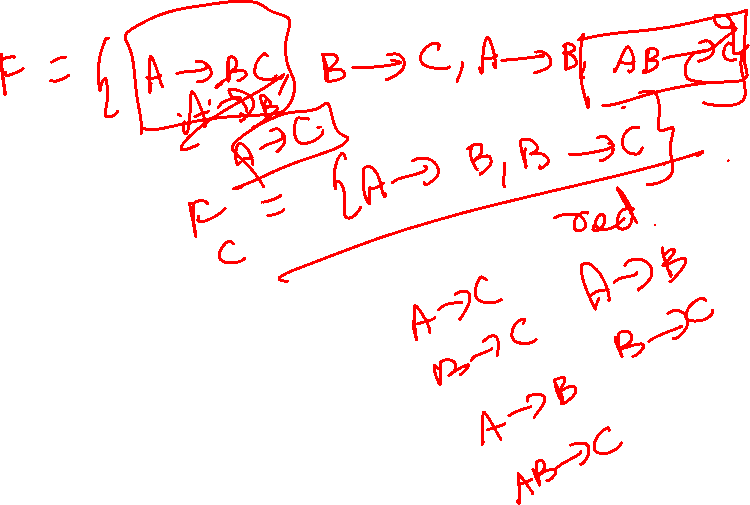 F = { A → BC, B → C, A → B, AB → C
A → B
A → C
F = { A → B, B → C }
C
red.
A → C A → B
B → C B → C
A → B
AB → C